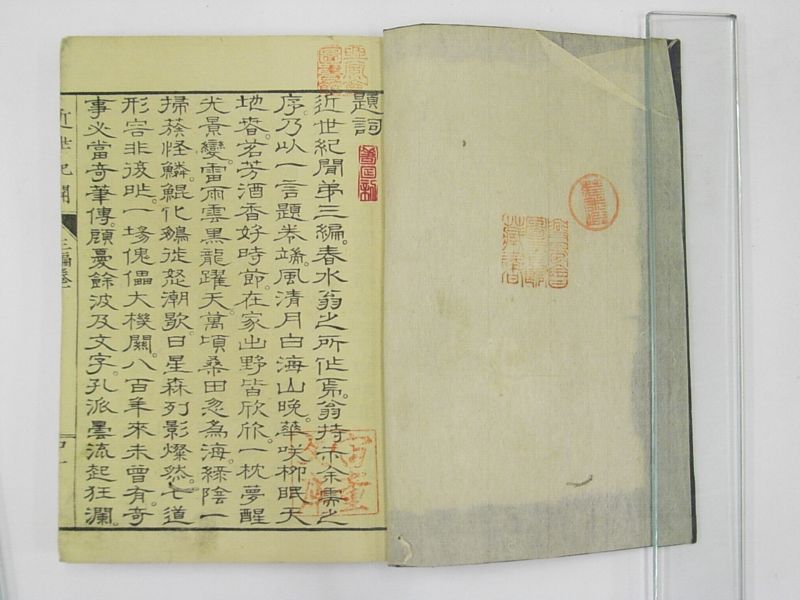 題詞
近世紀聞第三編。春水翁之所作焉。翁持示余需之
序。乃以一言題卷端。風清月白海山晚。華咲柳眠天
地春。茗芳酒香好時節。在家出野皆欣欣。一枕夢醒
光景變。雷雨雲黑龍躍天。萬頃桑田忽為海。綠陰一
掃蔟怪鱗。鯤化鵬徙怒潮歇。日星森列影燦然。七道
形容非復昨。一場傀儡大機關。八百年來未曾有。奇
事必當奇筆傳。顧憂餘波及文字。孔派曇流起狂瀾。
近世紀聞
三編卷一